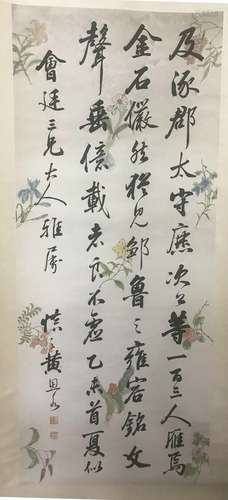 及涿郡太守廉次公等一百三人雁焉
金石儼然猶見鄒魯之雍容銘文
聲垂億載老良不虛乙未首夏似
會廷三兄大人雅屬
黃恩永